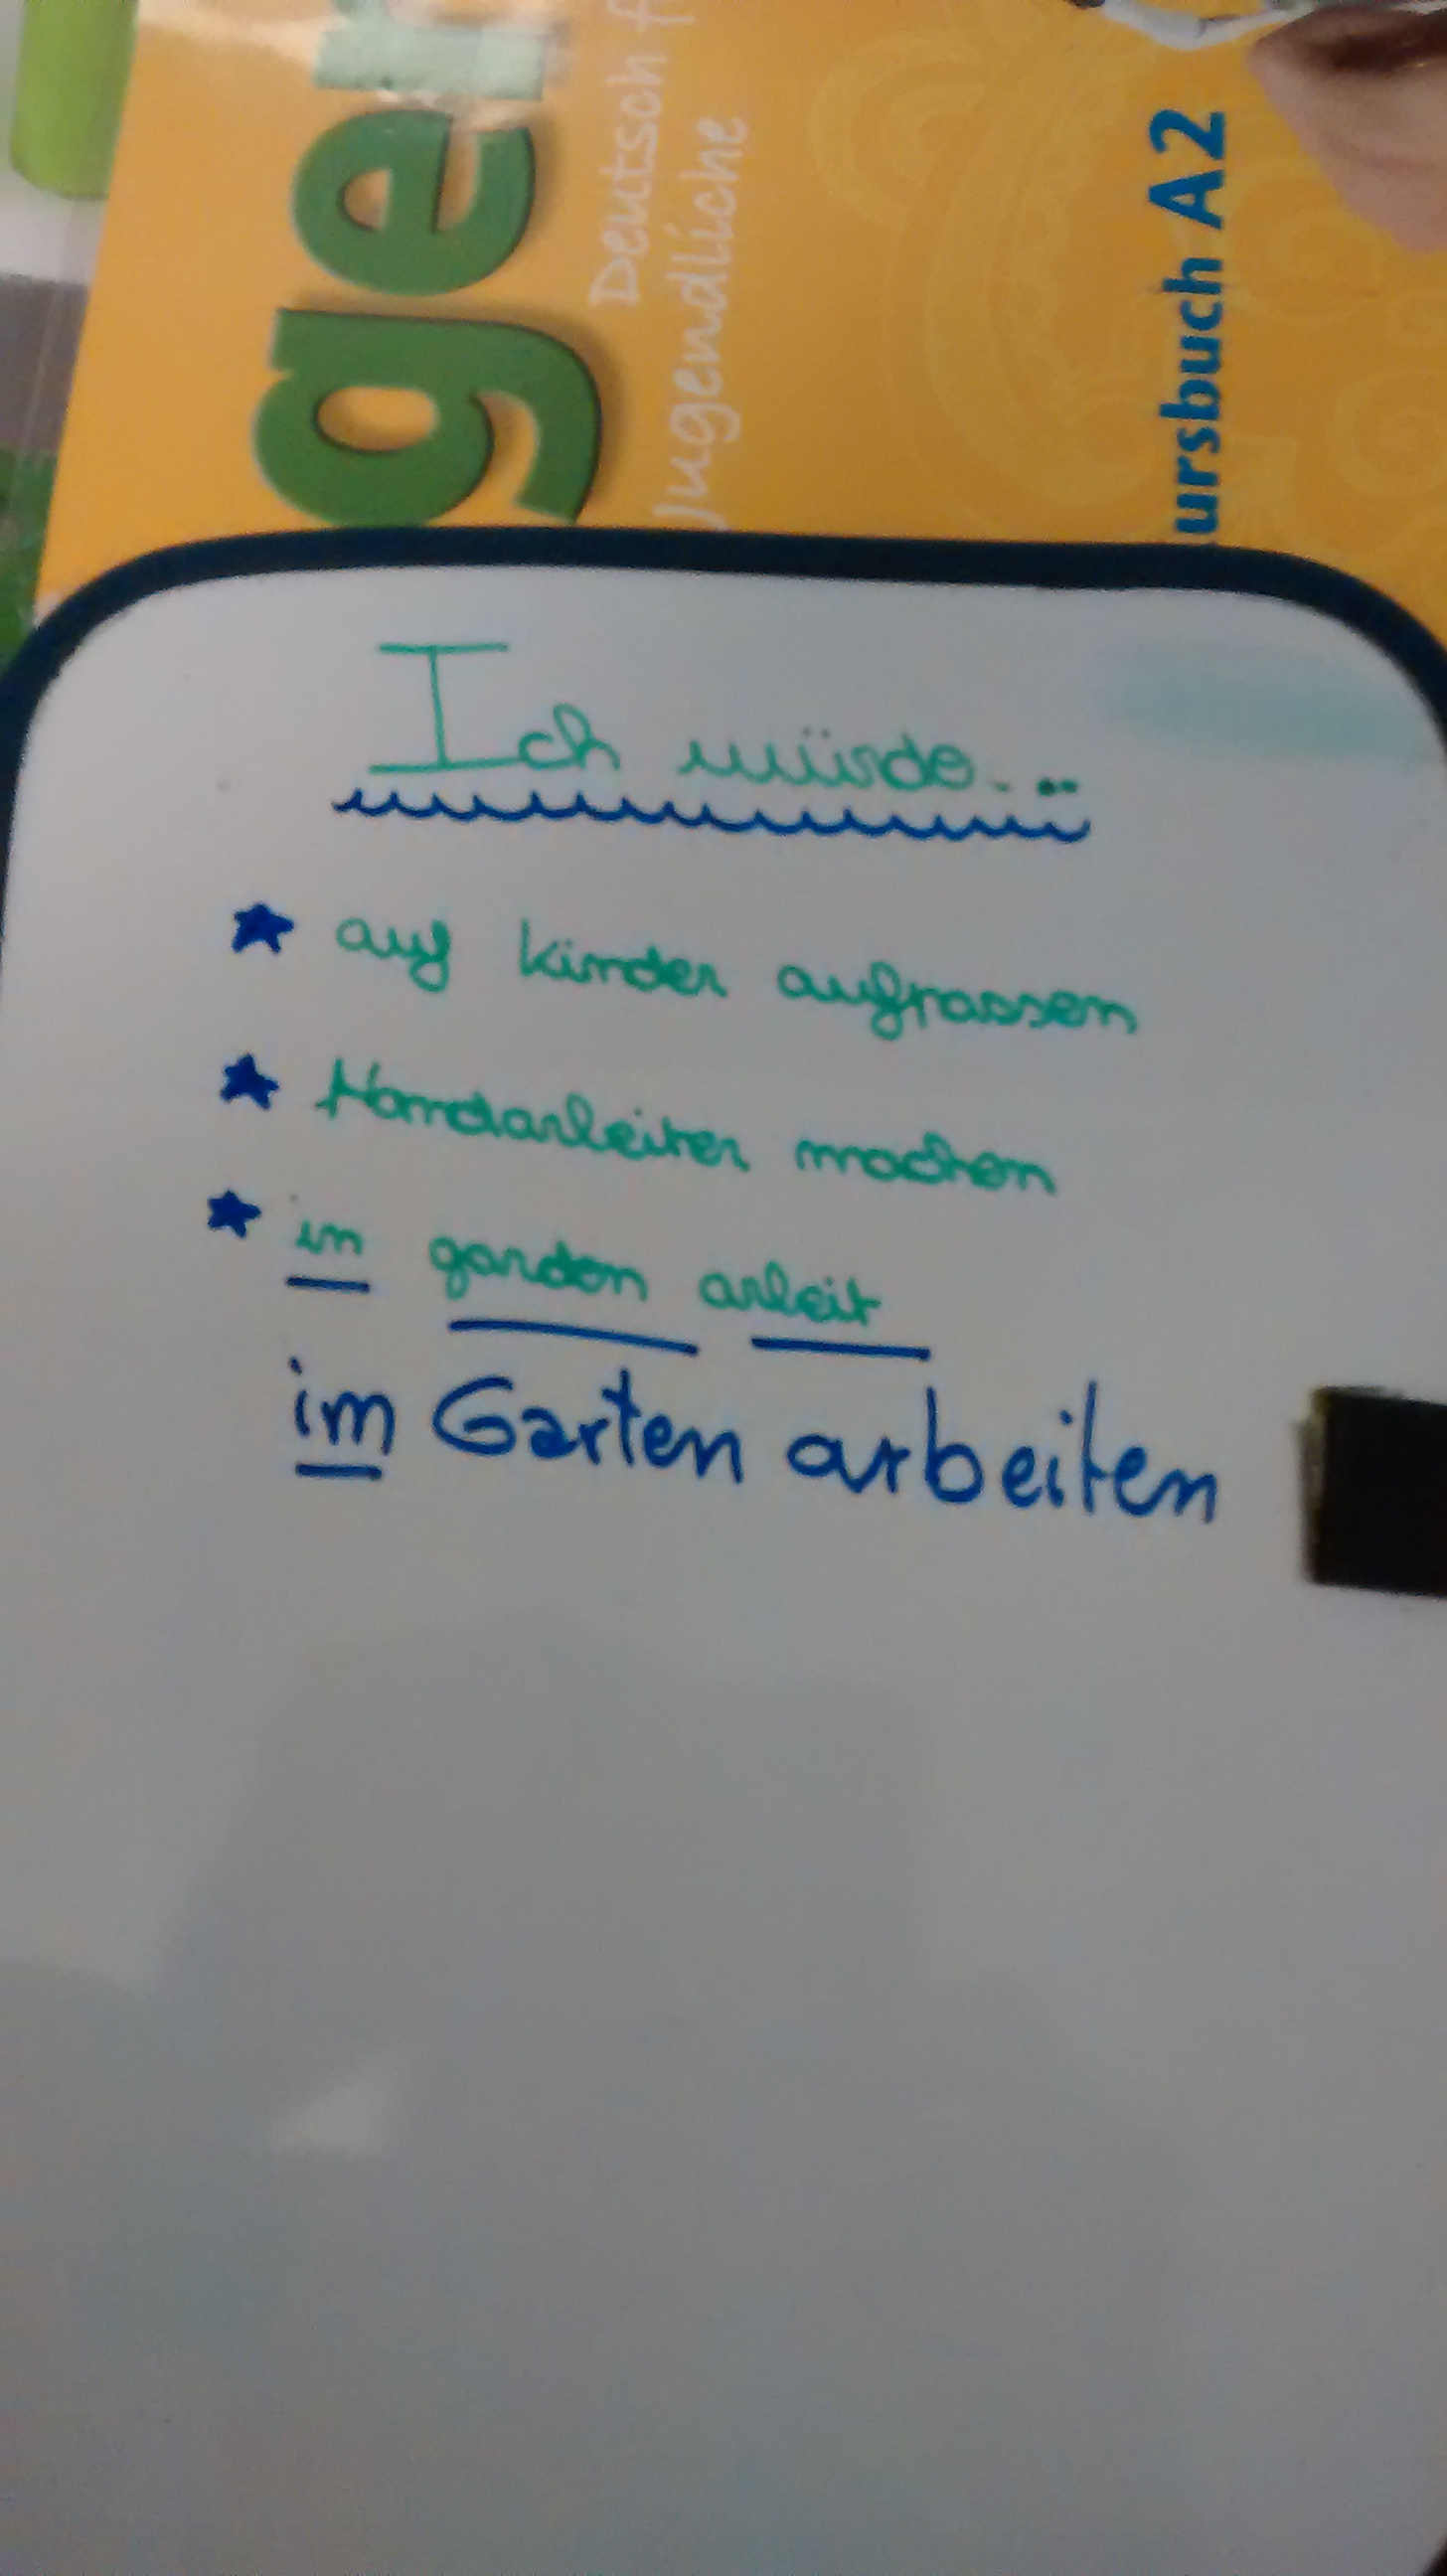 ger
Deutsch f
Jugendliche
ursbuch A2
Ich würde...
auf kinder aufpassen
Handarbeiter machen
in garden arbeit
im Garten arbeiten